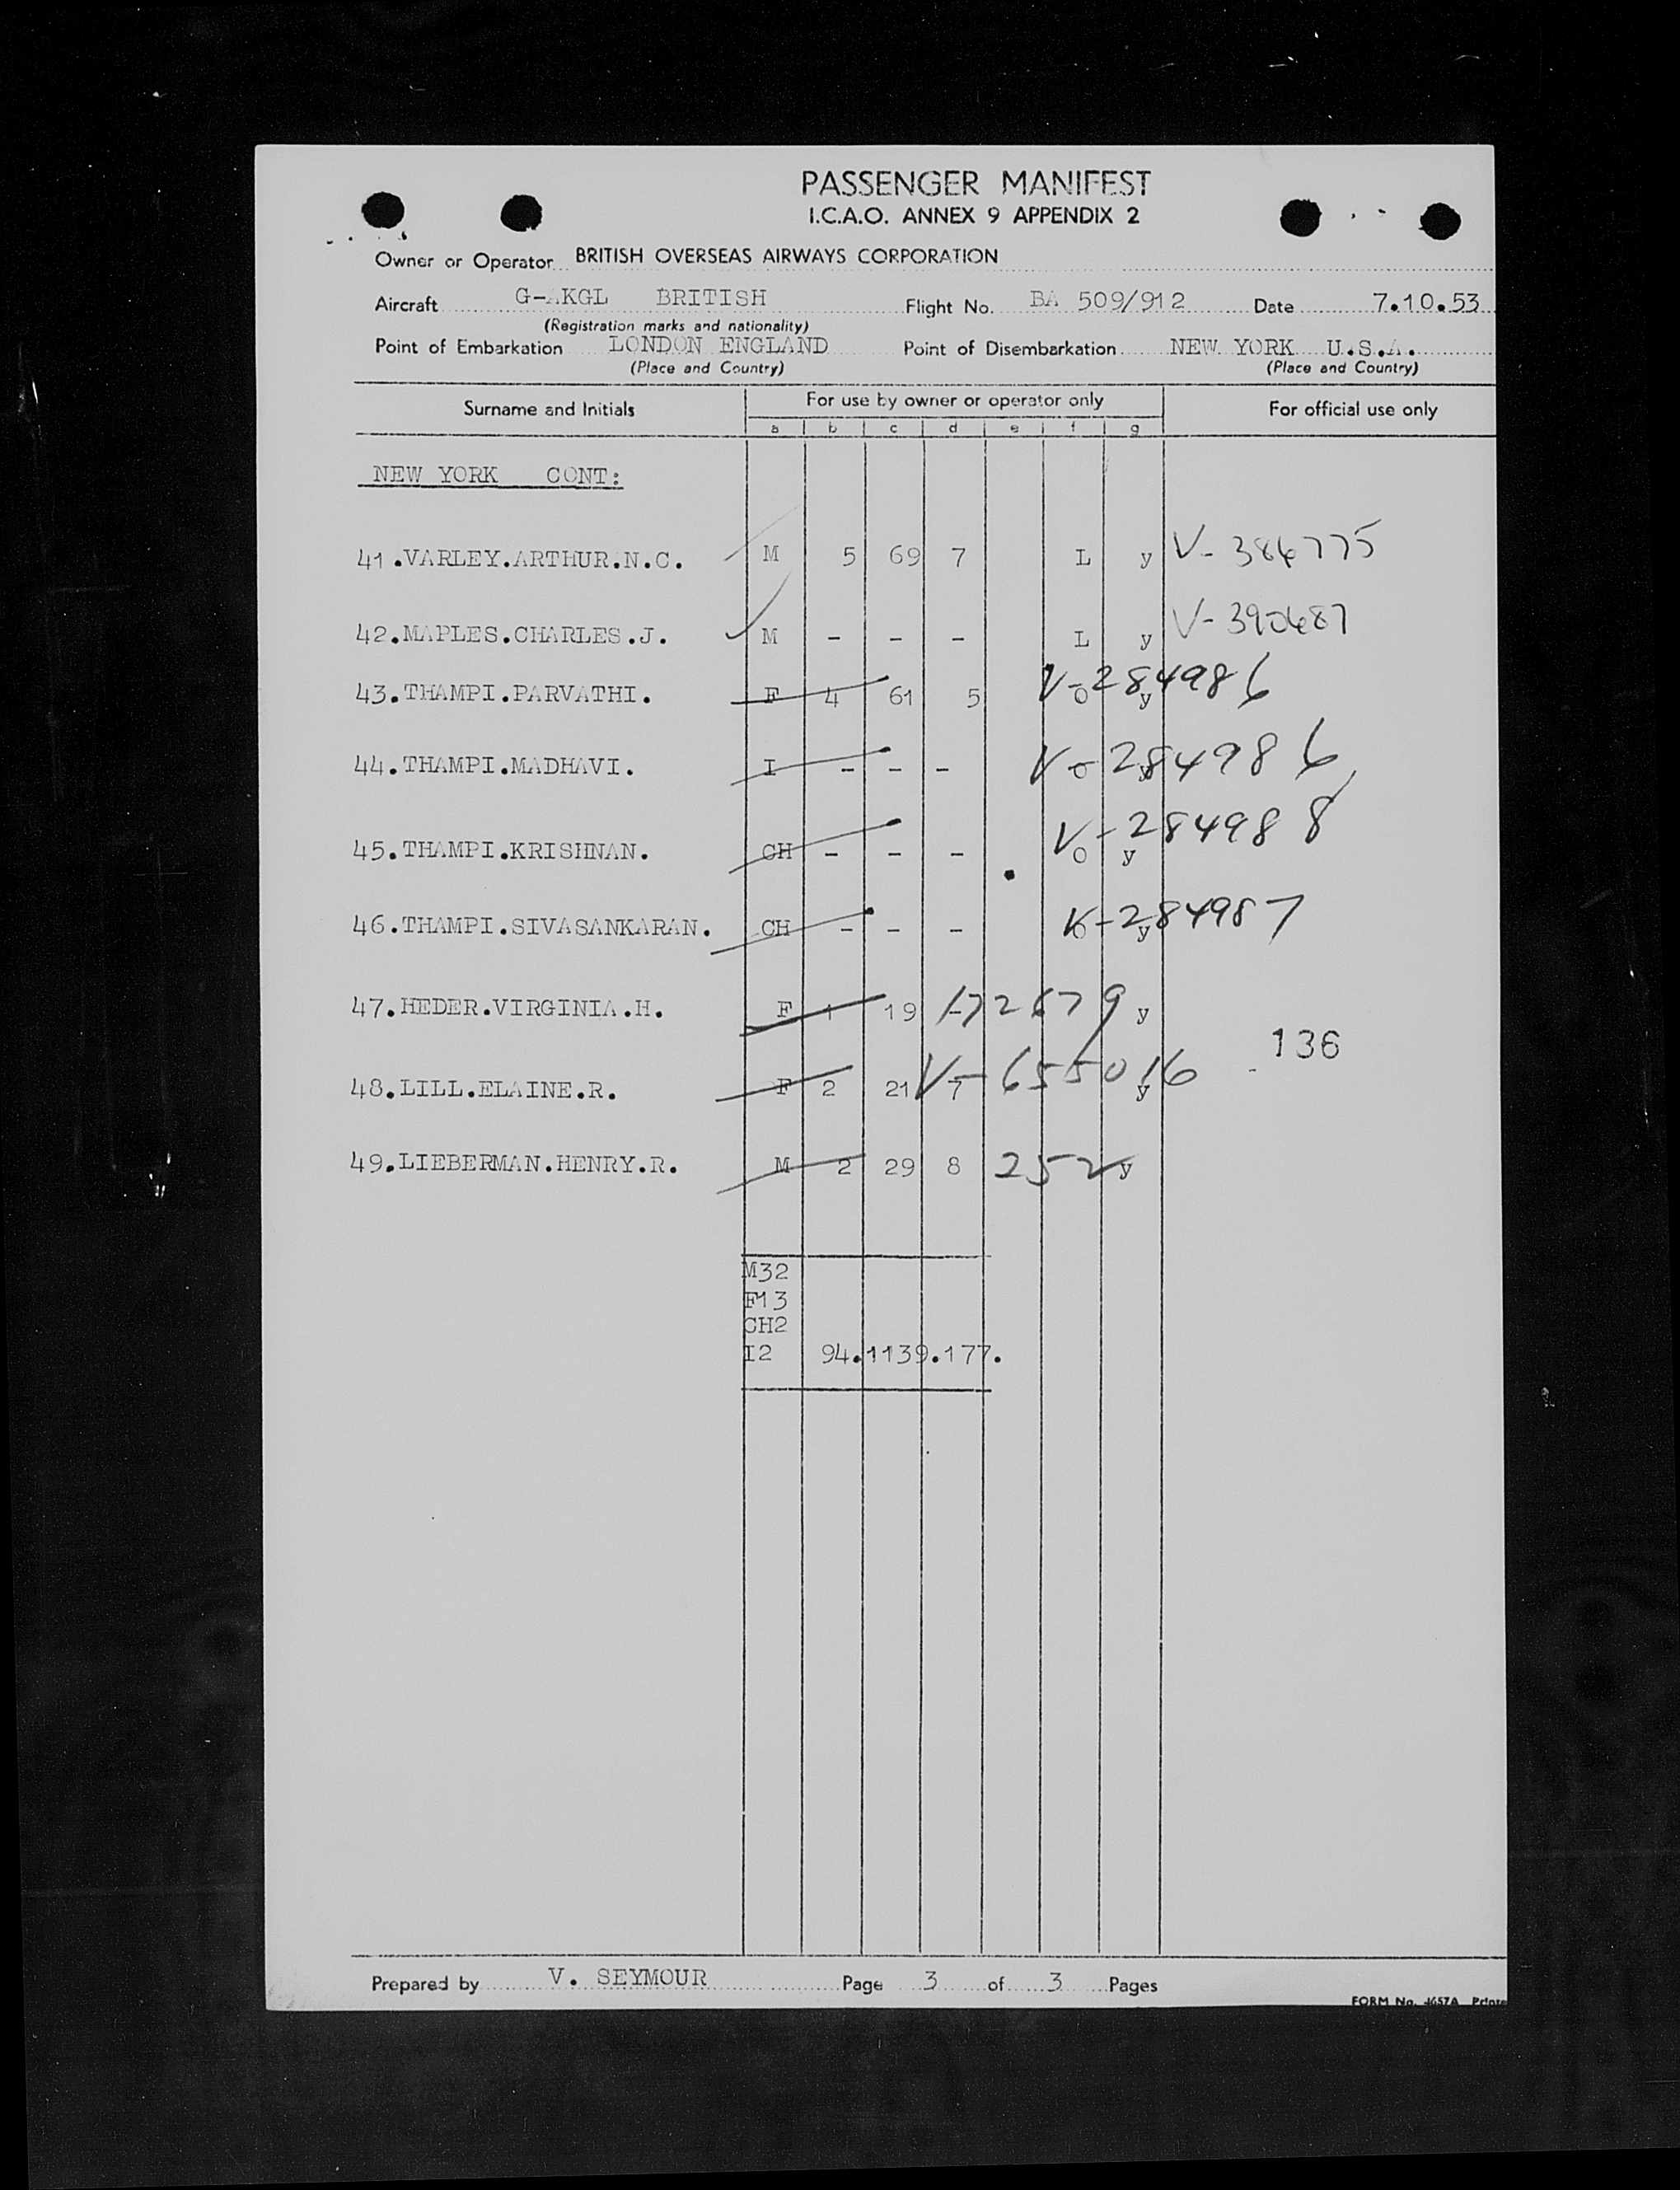 PASSENGER MANIFEST
I.C.A.O. ANNEX 9 APPENDIX 2
Owner or Operator BRITISH OVERSEAS AIRWAYS CORPORATION
Aircraft G-AKGL BRITISH Flight No. BA 509/912 Date 7.10.53
(Registration marks and nationality)
Point of Embarkation LONDON ENGLAND Point of Disembarkation NEW YORK U.S.A.
(Place and Country) (Place and Country)
Surname and Initials For use by owner or operator only For official use only
a b c d e f g
NEW YORK CONT:
41.VARLEY.ARTHUR.N.C. M 5 69 7 L y V-384775
42.MAPLES.CHARLES.J. M - - - L y V-390487
43.THAMPI.PARVATHI. F 4 61 5 O y V-284986
44.THAMPI.MADHAVI. I - - - O y V-284986
45.THAMPI.KRISHNAN. CH - - - O y V-284988
46.THAMPI.SIVASANKARAN. CH - - - O y V-284987
47.HEDER.VIRGINIA.H. F 1 19 - y
136
48.LILL.ELAINE.R. F 2 21 7 y V-655016
49.LIEBERMAN.HENRY.R. M 2 29 8 252 y
M32
F13
CH2
I2 94.1139.177.
Prepared by V. SEYMOUR Page 3 of 3 Pages
FORM No.